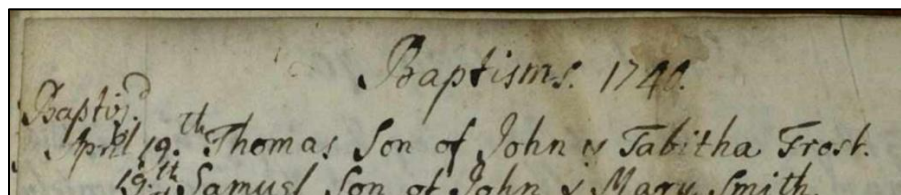 Baptisms. 1740.
Baptiz.d
April 19.th Thomas Son of John & Tabitha Frost.
19.th Samuel Son of John & Mary Smith